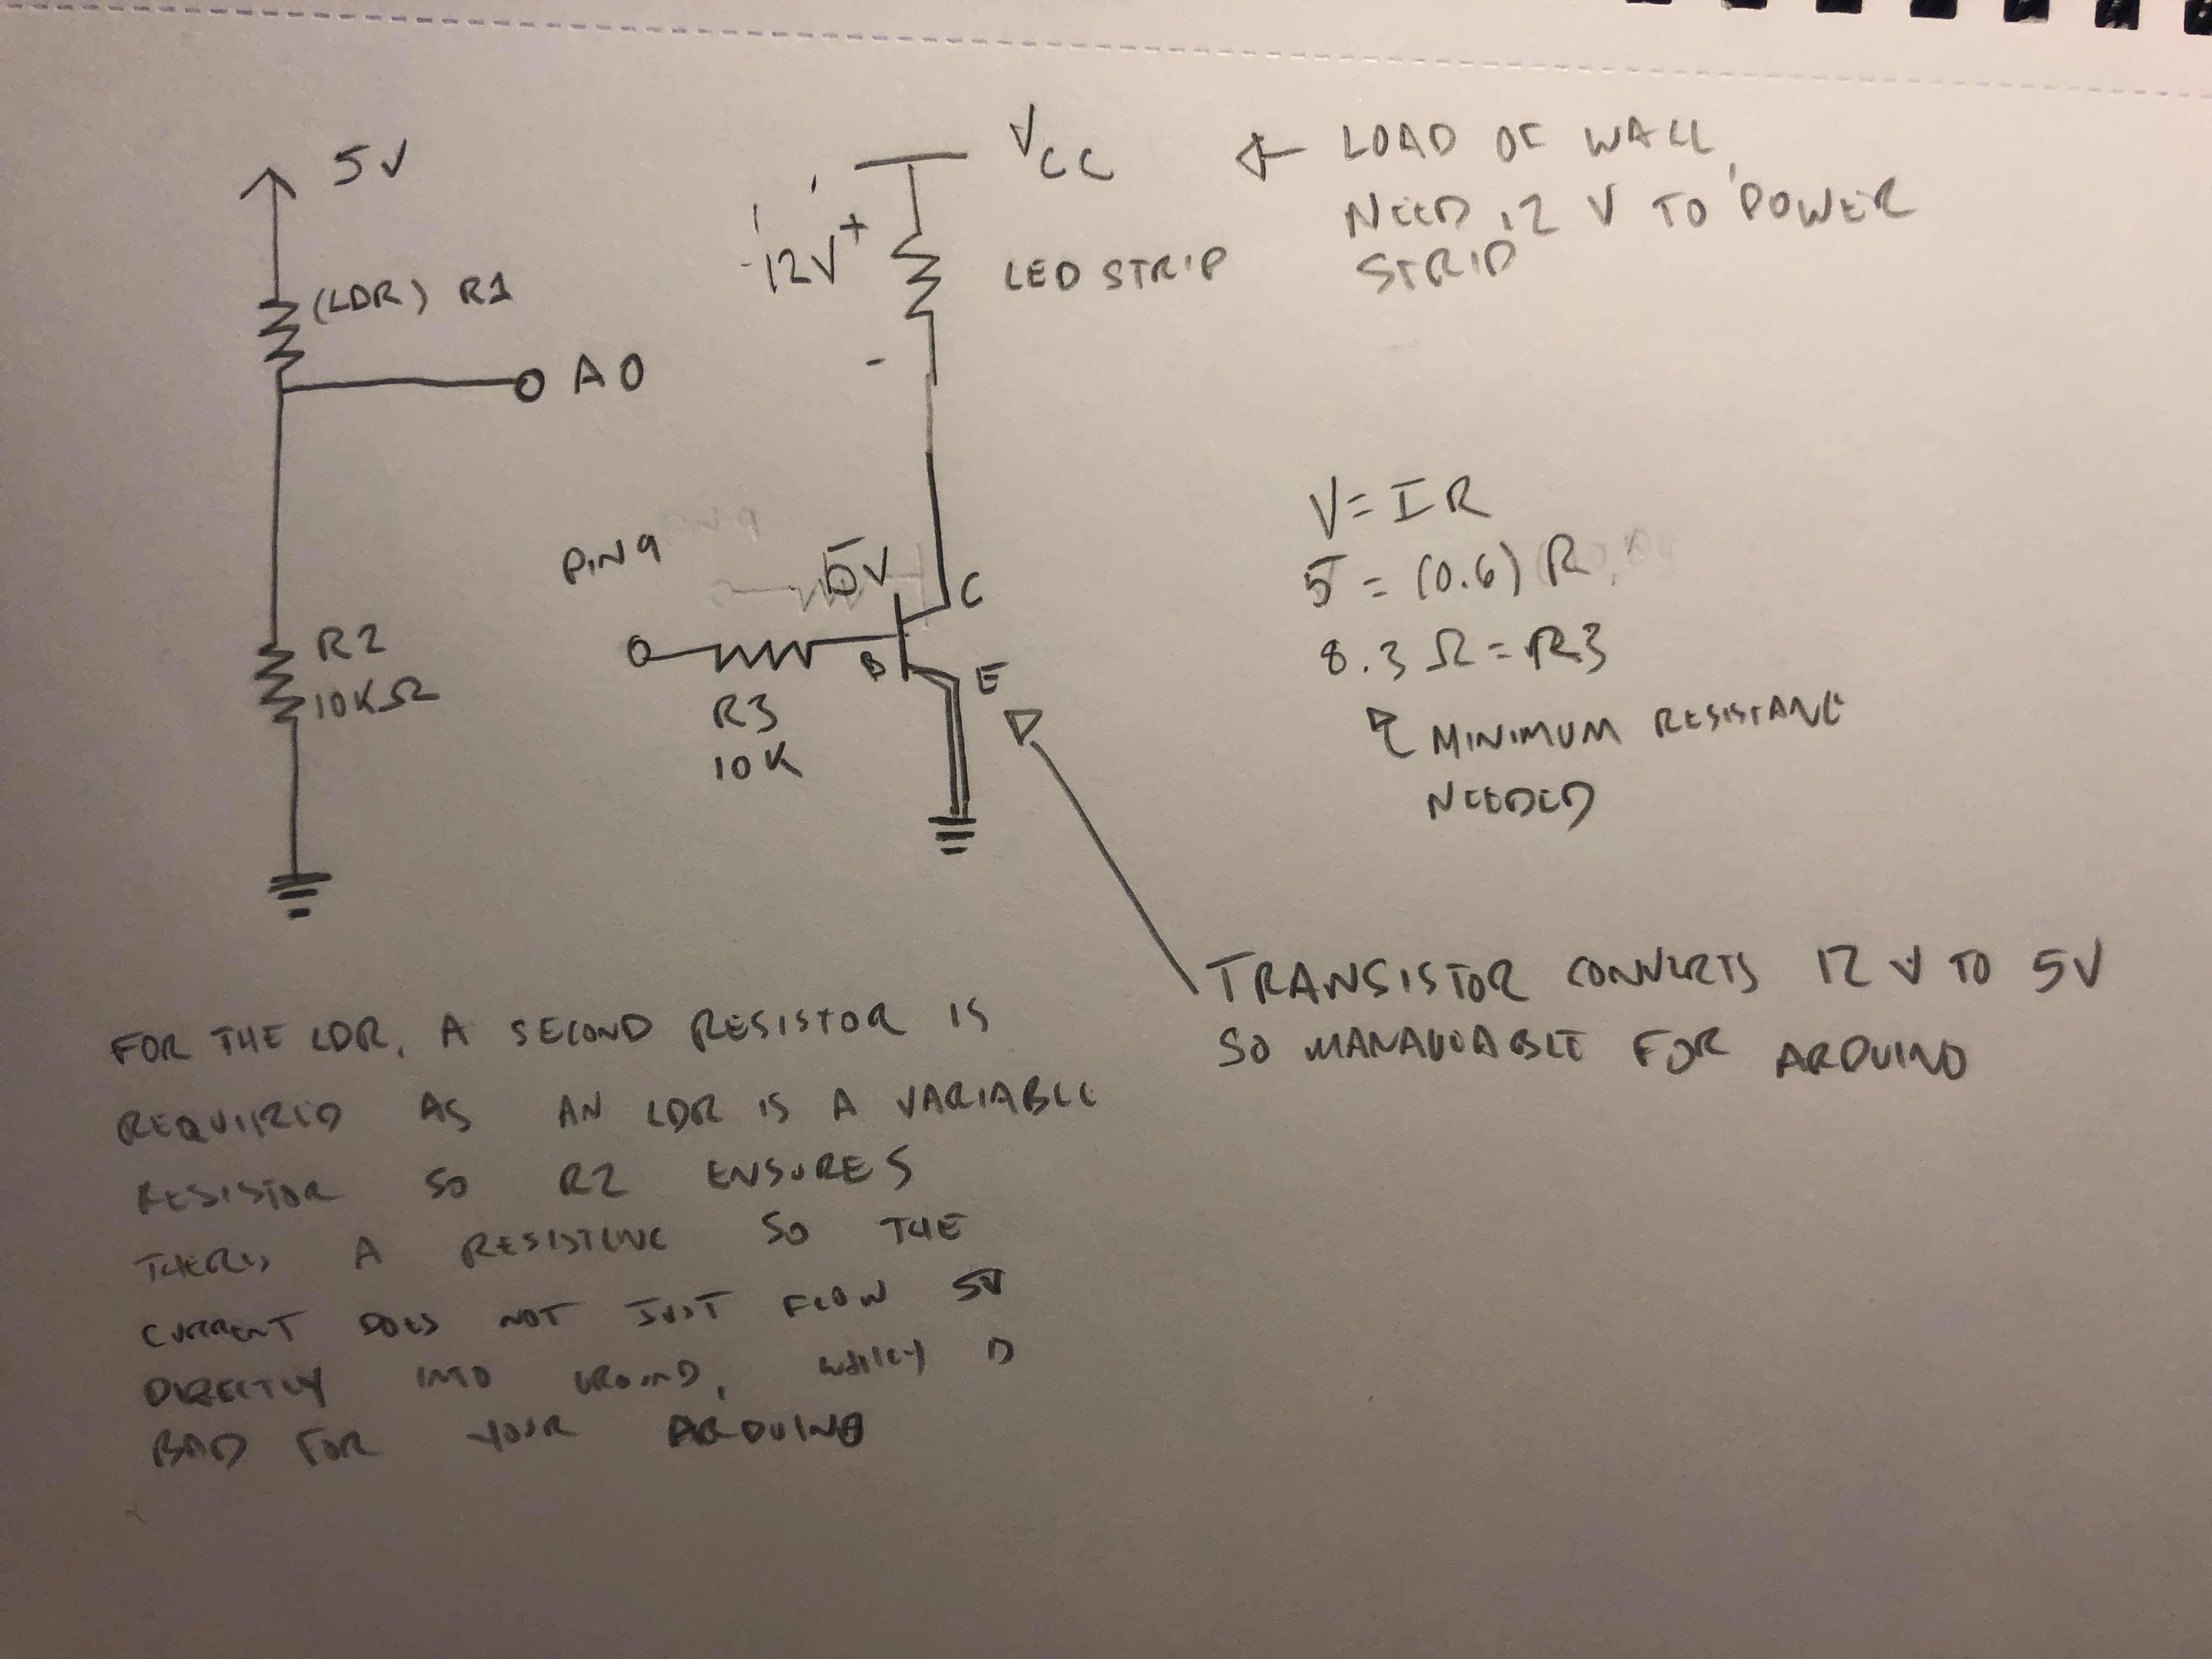 5V
(LDR) R1
A0
R2
10KΩ
VCC
-12V+
LED STRIP
-
← LOAD OF WALL,
NEED 12 V TO POWER
STRIP
PIN 9
5V
C
B
E
R3
10K
V = IR
5 = (0.6) R
8.3 Ω = R3
MINIMUM RESISTANCE
NEEDED
TRANSISTOR CONVERTS 12 V TO 5V
SO MANAGEABLE FOR ARDUINO
FOR THE LDR, A SECOND RESISTOR IS
REQUIRED AS AN LDR IS A VARIABLE
RESISTOR SO R2 ENSURES
THERES A RESISTENC SO THE
CURRENT DOES NOT JUST FLOW 5V
DIRECTLY INTO GROUND, WHICH IS
BAD FOR YOUR ARDUINO